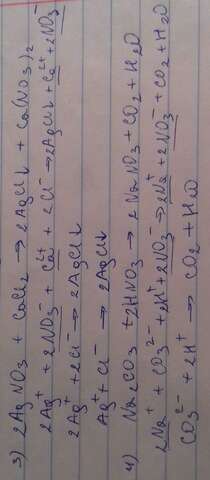 3) 2AgNO3 + CaCl2 → 2AgCl↓ + Ca(NO3)2
2Ag⁺ + 2NO3⁻ + Ca²⁺ + 2Cl⁻ → 2AgCl↓ + Ca²⁺ + 2NO3⁻
2Ag⁺ + 2Cl⁻ → 2AgCl↓
Ag⁺ + Cl⁻ → 2AgCl↓
4) Na2CO3 + 2HNO3 → 2NaNO3 + CO2 + H2O
2Na⁺ + CO3²⁻ + 2H⁺ + 2NO3⁻ → 2Na⁺ + 2NO3⁻ + CO2 + H2O
CO3²⁻ + 2H⁺ → CO2 + H2O